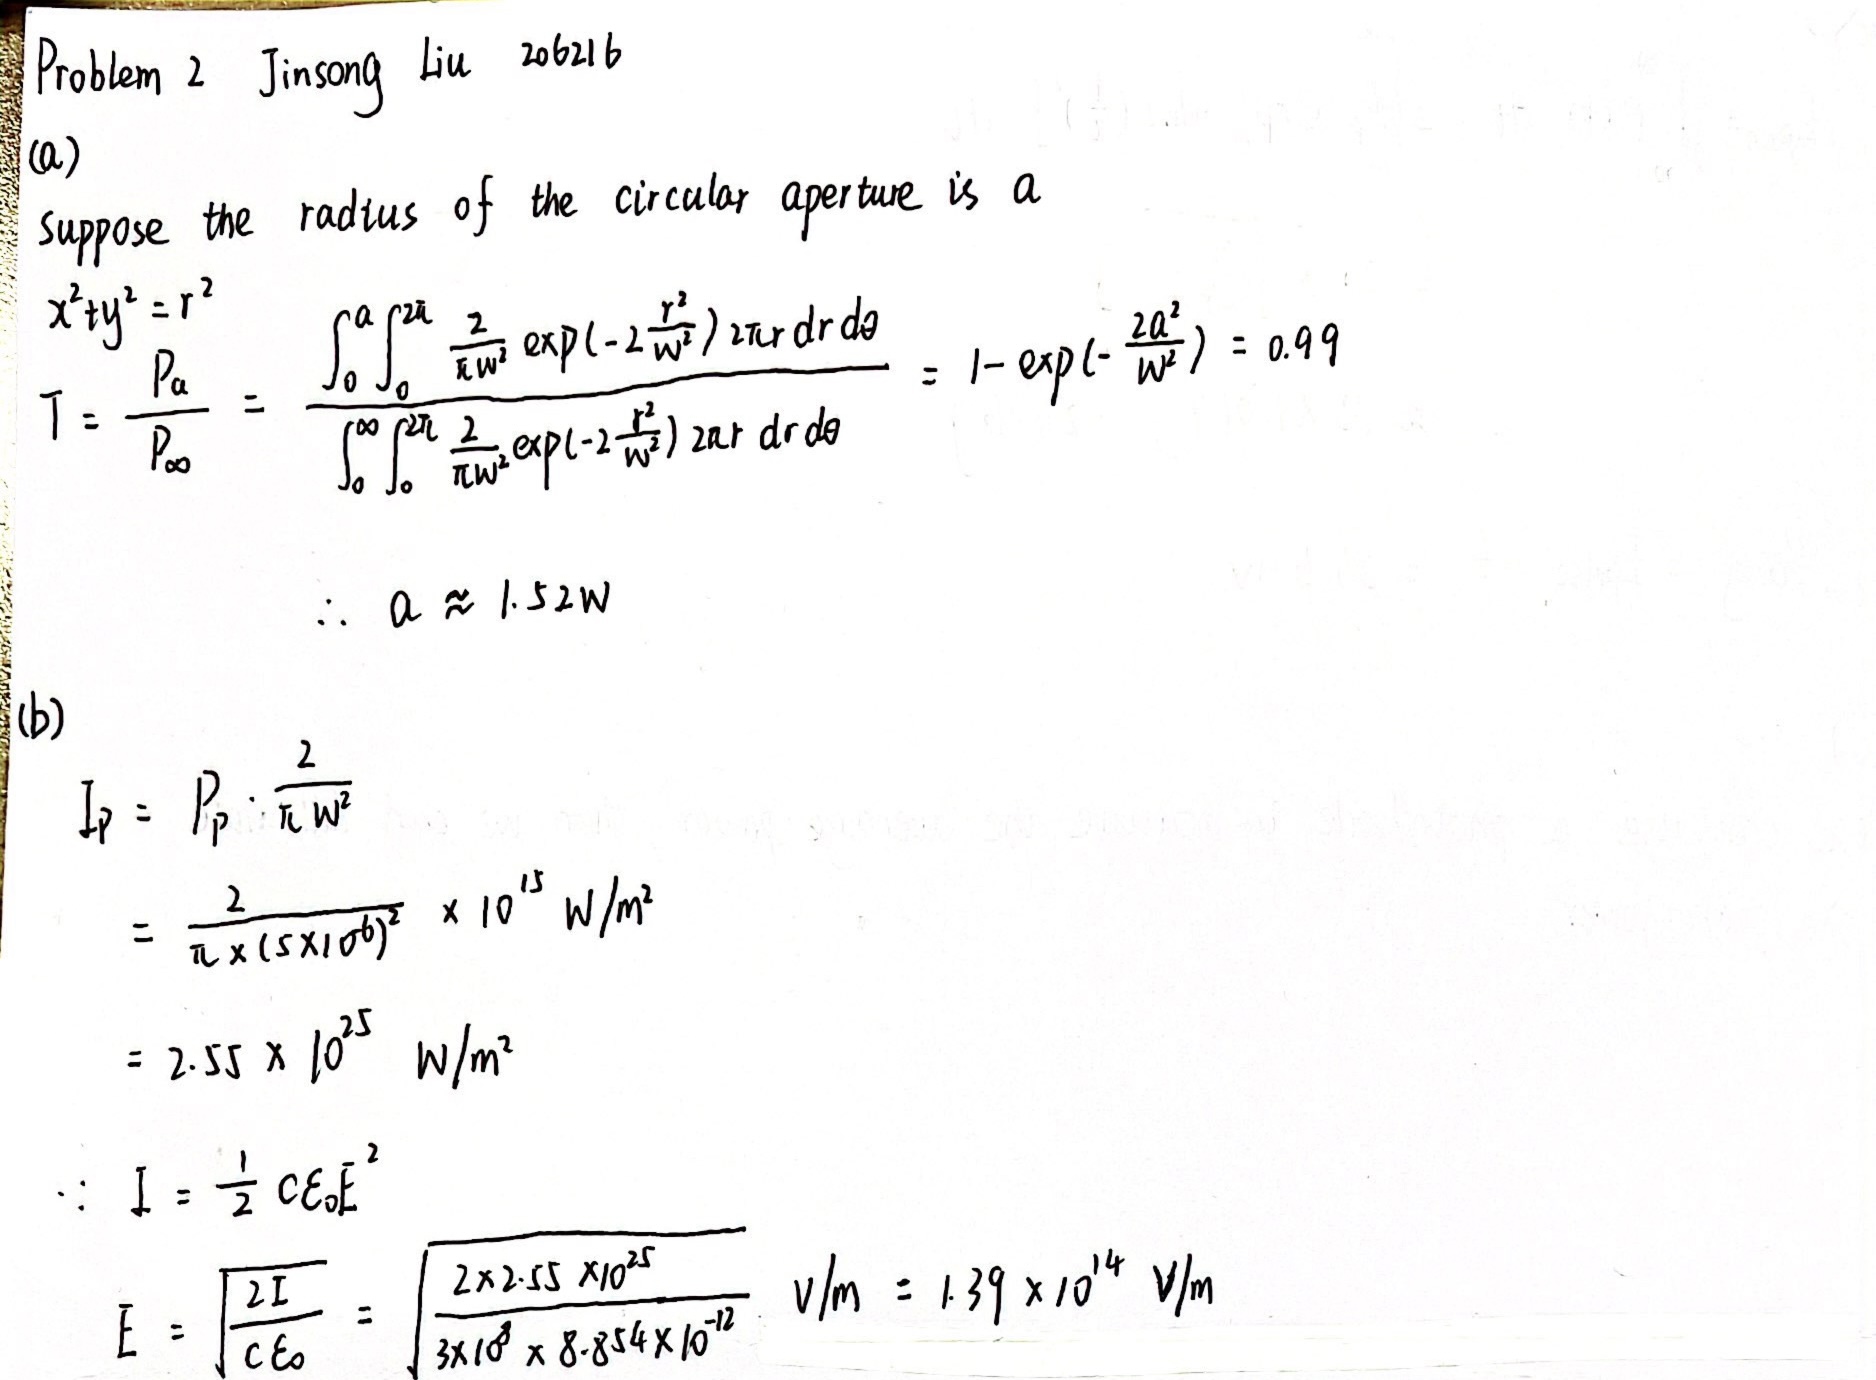 Problem 2 Jinsong Liu 206216
(a)
suppose the radius of the circular aperture is a
x²+y² = r²
T = Pa/P∞ = ∫₀^a ∫₀^2π 2/(πw²) exp(-2 r²/w²) 2πr dr dθ / ∫₀^∞ ∫₀^2π 2/(πw²) exp(-2 r²/w²) 2πr dr dθ = 1- exp(- 2a²/w²) = 0.99
∴ a ≈ 1.52w
(b)
Ip = Pp · 2/(πw²)
= 2/(π×(5×10⁻⁶)²) × 10¹⁵ W/m²
= 2.55 × 10²⁵ W/m²
∵ I = 1/2 cε₀E²
E = √(2I/(cε₀)) = √(2×2.55×10²⁵/(3×10⁸ × 8.854×10⁻¹²)) V/m = 1.39 × 10¹⁴ V/m